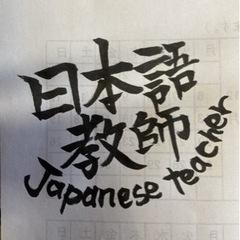 日本語
教師
Japanese teacher